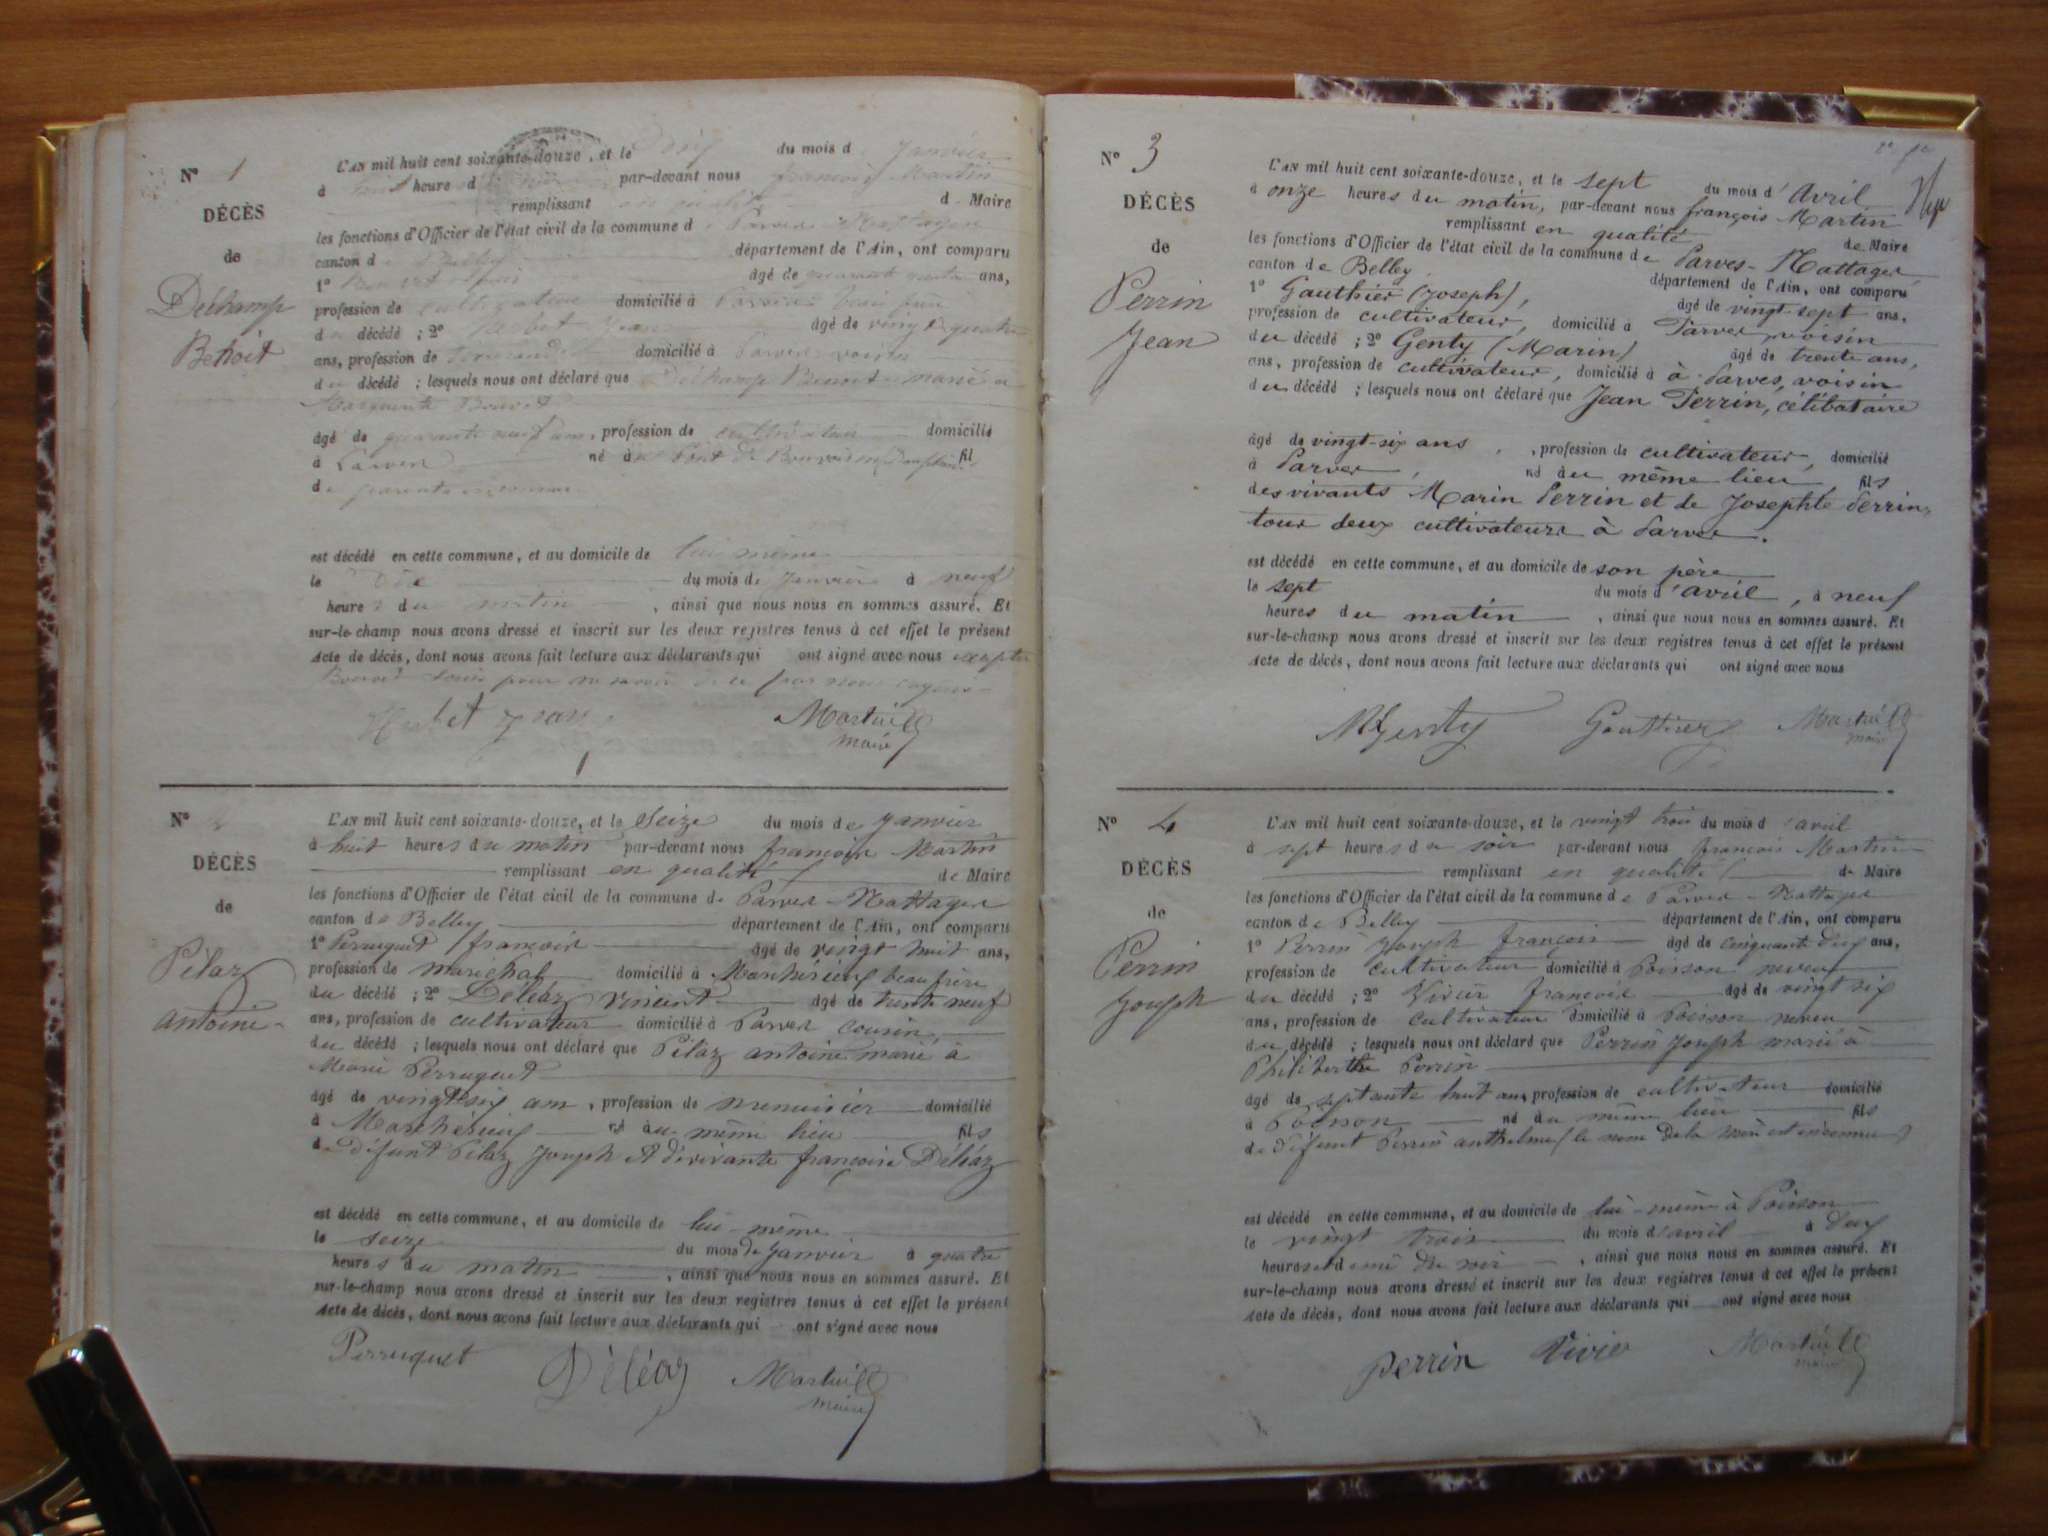 N° 1
DÉCÈS
de
Déchamp
Benoit
L'AN mil huit cent soixante-douze, et le du mois de Janvier
à heure d par-devant nous françois Martin
remplissant en qualité de Maire
les fonctions d'Officier de l'état civil de la commune de Parves-Nattages
canton de Belley département de l'Ain, ont comparu
1° Bouvet Louis âgé de quarante quatre ans,
profession de cultivateur domicilié à Parves
du décédé ; 2° Jean âgé de vingt quatre
ans, profession de domicilié à Parves voisin
du décédé ; lesquels nous ont déclaré que Déchamp Benoit marié à
Marguerite Bouvet
âgé de quarante neuf ans, profession de cultivateur domicilié
à Parves né à Pont de Beauvoisin fil
de parents inconnus
est décédé en cette commune, et au domicile de lui même
le du mois de Janvier à neuf
heures du matin, ainsi que nous nous en sommes assuré. Et
sur-le-champ nous avons dressé et inscrit sur les deux registres tenus à cet effet le présent
Acte de décès, dont nous avons fait lecture aux déclarants qui ont signé avec nous excepté
Bouvet Louis pour ne savoir de ce par nous requis
Jean Martin
maire
N°
DÉCÈS
de
Pélaz
antoine
L'AN mil huit cent soixante-douze, et le Seize du mois de Janvier
à huit heures du matin par-devant nous françois Martin
remplissant en qualité de Maire
les fonctions d'Officier de l'état civil de la commune de Parves-Nattages
canton de Belley département de l'Ain, ont comparu
1° Perruquet françois âgé de vingt huit ans,
profession de maréchal domicilié à beaufrère
du décédé ; 2° Déléaz vincent âgé de trente neuf
ans, profession de cultivateur domicilié à Parves cousin
du décédé ; lesquels nous ont déclaré que Pélaz antoine marié à
Marie Perruquet
âgé de vingt six ans, profession de menuisier domicilié
à né au même lieu fils
de défunt Pélaz Joseph et de vivante françoise Déléaz
est décédé en cette commune, et au domicile de lui-même
le seize du mois de Janvier à quatre
heures du matin, ainsi que nous nous en sommes assuré. Et
sur-le-champ nous avons dressé et inscrit sur les deux registres tenus à cet effet le présent
Acte de décès, dont nous avons fait lecture aux déclarants qui ont signé avec nous
Perruquet Déléaz Martin
maire
N° 3
DÉCÈS
de
Perrin
Jean
L'AN mil huit cent soixante-douze, et le sept du mois d'Avril
à onze heures du matin, par-devant nous françois Martin
remplissant en qualité de Maire
les fonctions d'Officier de l'état civil de la commune de Parves-Nattages
canton de Belley département de l'Ain, ont comparu
1° Gauthier (Joseph), âgé de vingt sept ans,
profession de cultivateur, domicilié à Parves, voisin
du décédé ; 2° Genty (Marin) âgé de trente ans,
ans, profession de cultivateur, domicilié à à Parves, voisin
du décédé ; lesquels nous ont déclaré que Jean Perrin, célibataire
âgé de vingt-six ans, profession de cultivateur, domicilié
à Parves, né au même lieu fils
des vivants Marin Perrin et de Josephte Perrin,
tous deux cultivateurs à Parves.
est décédé en cette commune, et au domicile de son père
le sept du mois d'avril, à neuf
heures du matin, ainsi que nous nous en sommes assuré. Et
sur-le-champ nous avons dressé et inscrit sur les deux registres tenus à cet effet le présent
Acte de décès, dont nous avons fait lecture aux déclarants qui ont signé avec nous
MGenty Gauthier Martin
maire
N° 4
DÉCÈS
de
Perrin
Joseph
L'AN mil huit cent soixante-douze, et le vingt trois du mois d'avril
à sept heures du soir par-devant nous françois Martin
remplissant en qualité de Maire
les fonctions d'Officier de l'état civil de la commune de Parves-Nattages
canton de Belley département de l'Ain, ont comparu
1° Perrin Joseph françois âgé de cinquante deux ans,
profession de cultivateur domicilié à Poisson neveu
du décédé ; 2° Vivier françois âgé de vingt six
ans, profession de cultivateur domicilié à Poisson neveu
du décédé ; lesquels nous ont déclaré que Perrin Joseph marié à
Philiberthe Perrin
âgé de septante huit ans, profession de cultivateur domicilié
à Poisson né au même lieu fils
de défunt Perrin anthelme (le nom de la mère est inconnu)
est décédé en cette commune, et au domicile de lui-même à Poisson
le vingt trois du mois d'avril à deux
heures et demie du soir, ainsi que nous nous en sommes assuré. Et
sur-le-champ nous avons dressé et inscrit sur les deux registres tenus à cet effet le présent
Acte de décès, dont nous avons fait lecture aux déclarants qui ont signé avec nous
Perrin Vivier Martin
maire